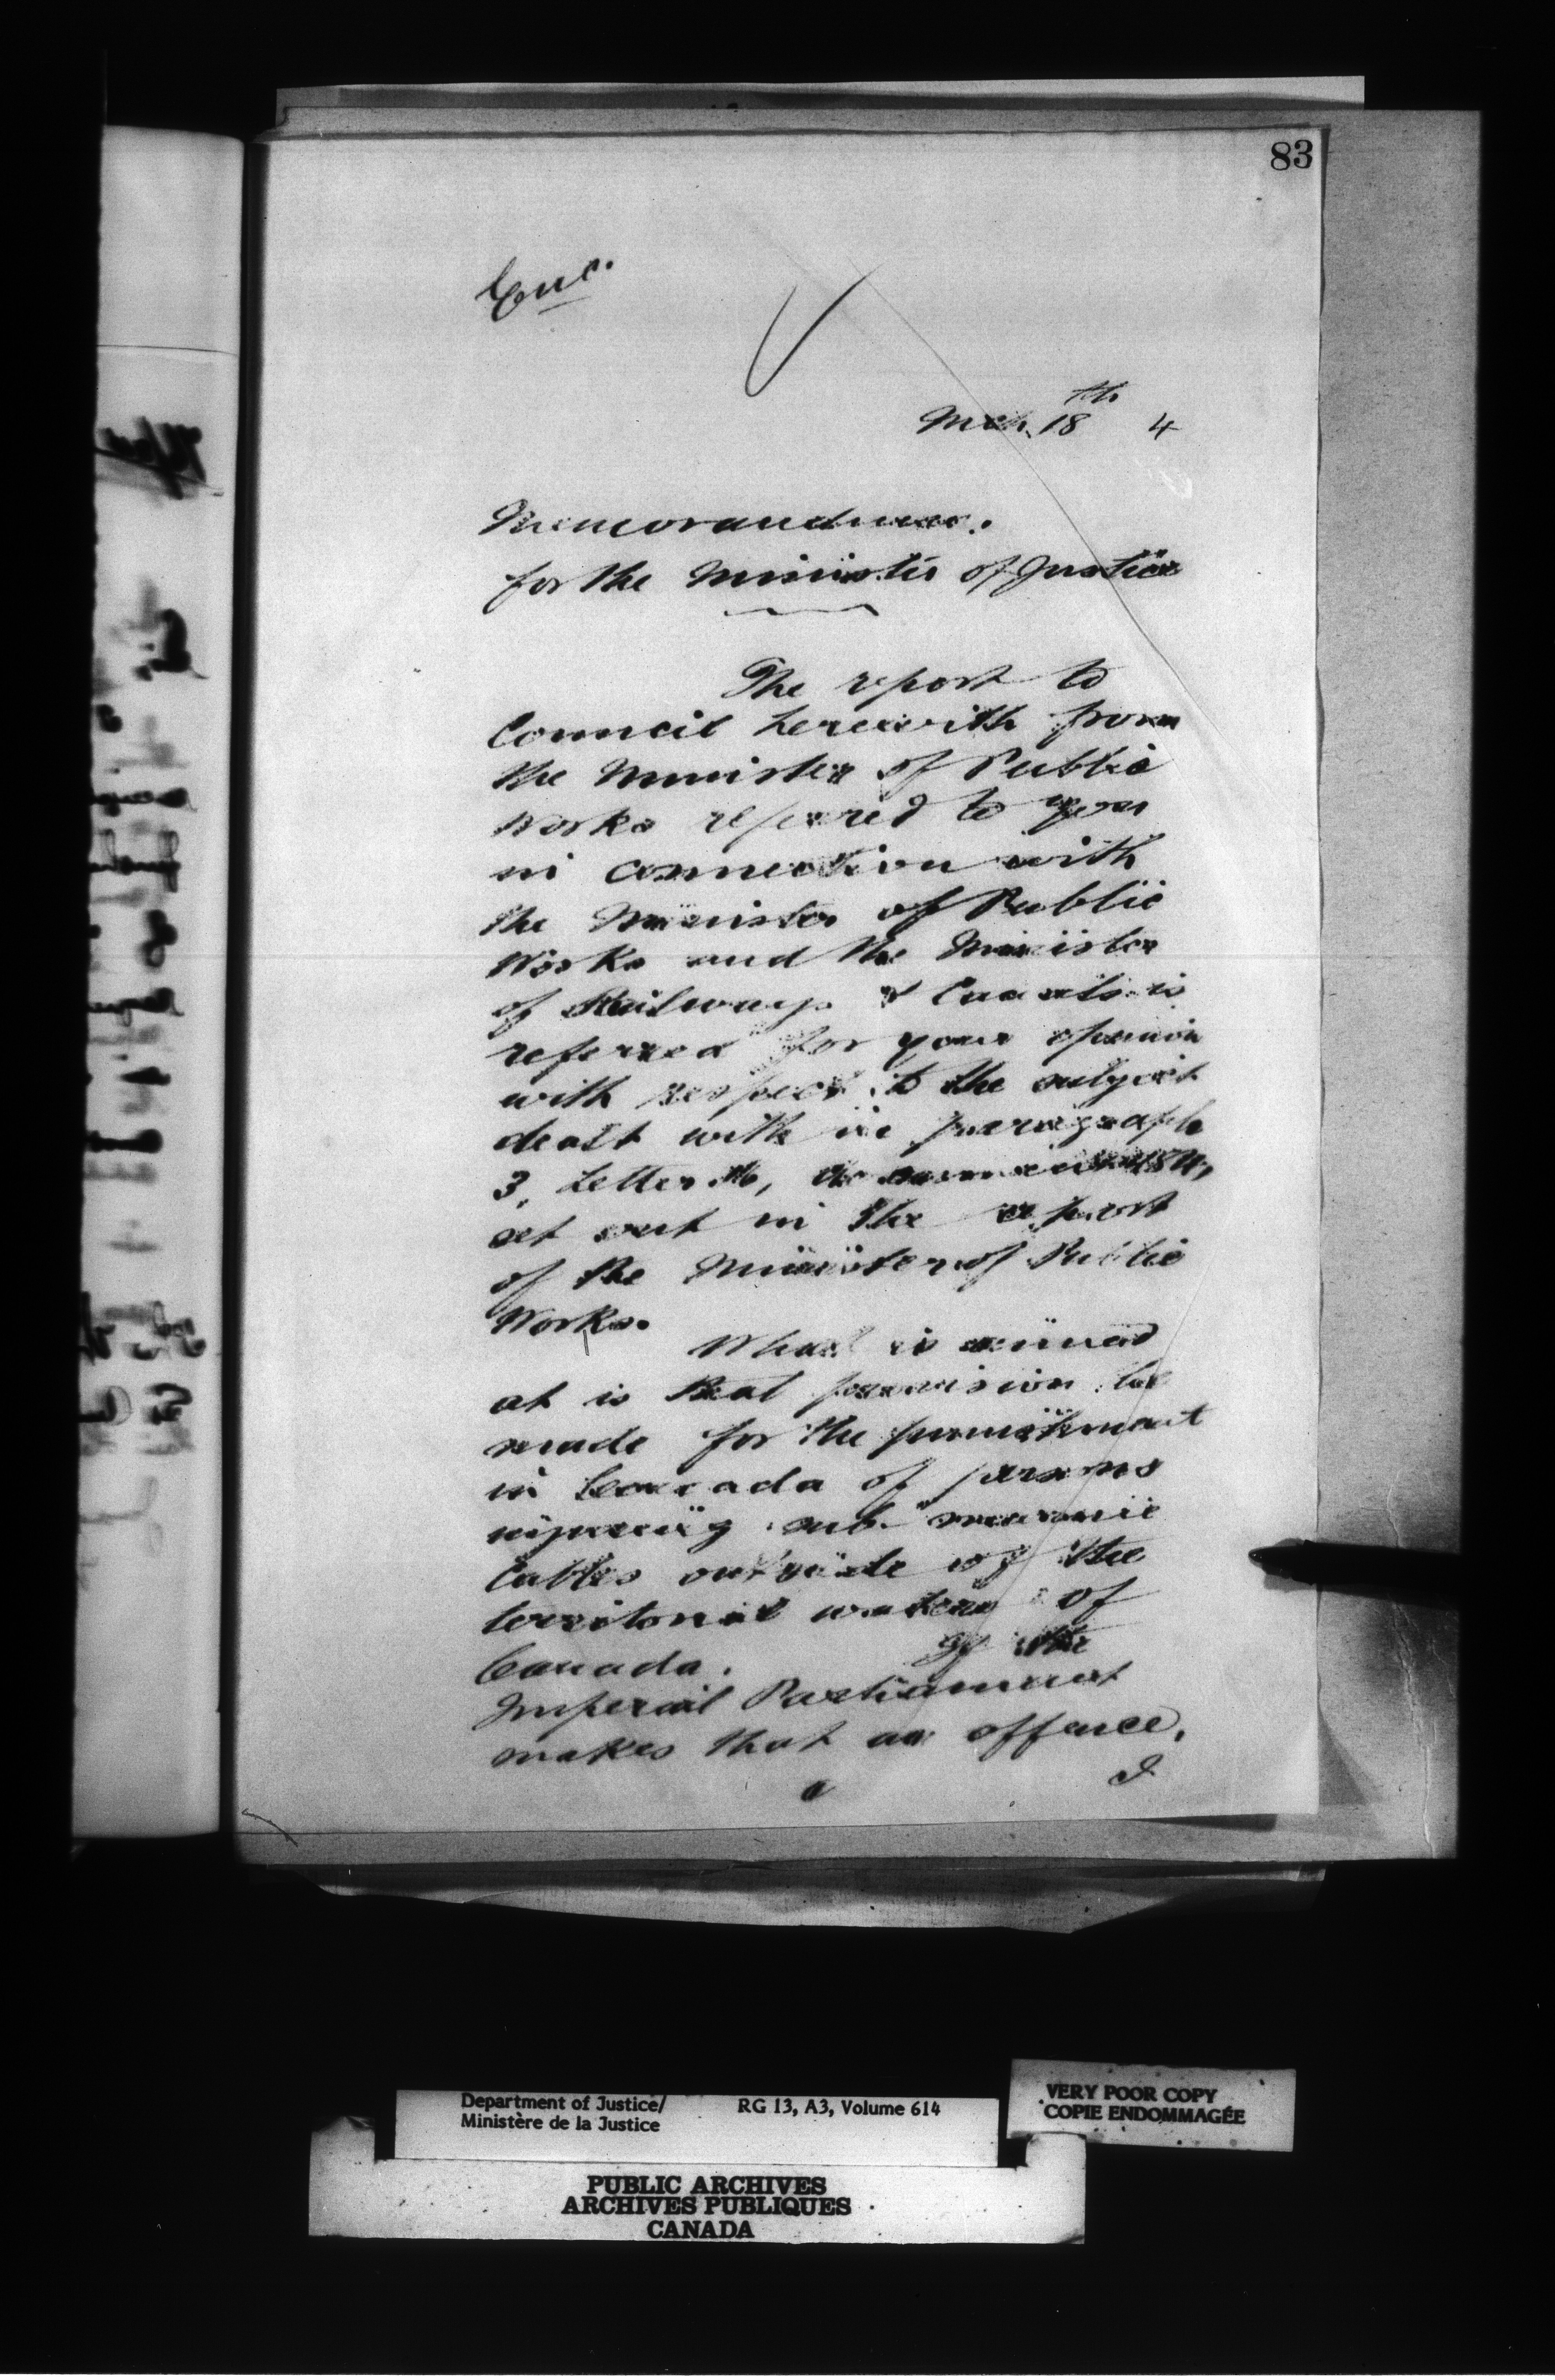 83
Enc.
Mch. 18th 4
Memorandum.
for the Minister of Justice
The report to
Council herewith from
the Minister of Public
Works refered to you
in connection with
the Minister of Public
Works and the Minister
of Railways & Canals is
referred for your opinion
with respect to the subject
dealt with in paragraph
3, Letter
set out in the report
of the Minister of Public
Works.
What is aimed
at is that provision be
made for the punishment
in Canada of persons
injuring sub-marine
Cables outside of the
territorial waters of
Canada. If the
Imperial Parliament
makes that an offence,
I
Department of Justice/
Ministère de la Justice
RG 13, A3, Volume 614
VERY POOR COPY
COPIE ENDOMMAGÉE
PUBLIC ARCHIVES
ARCHIVES PUBLIQUES
CANADA